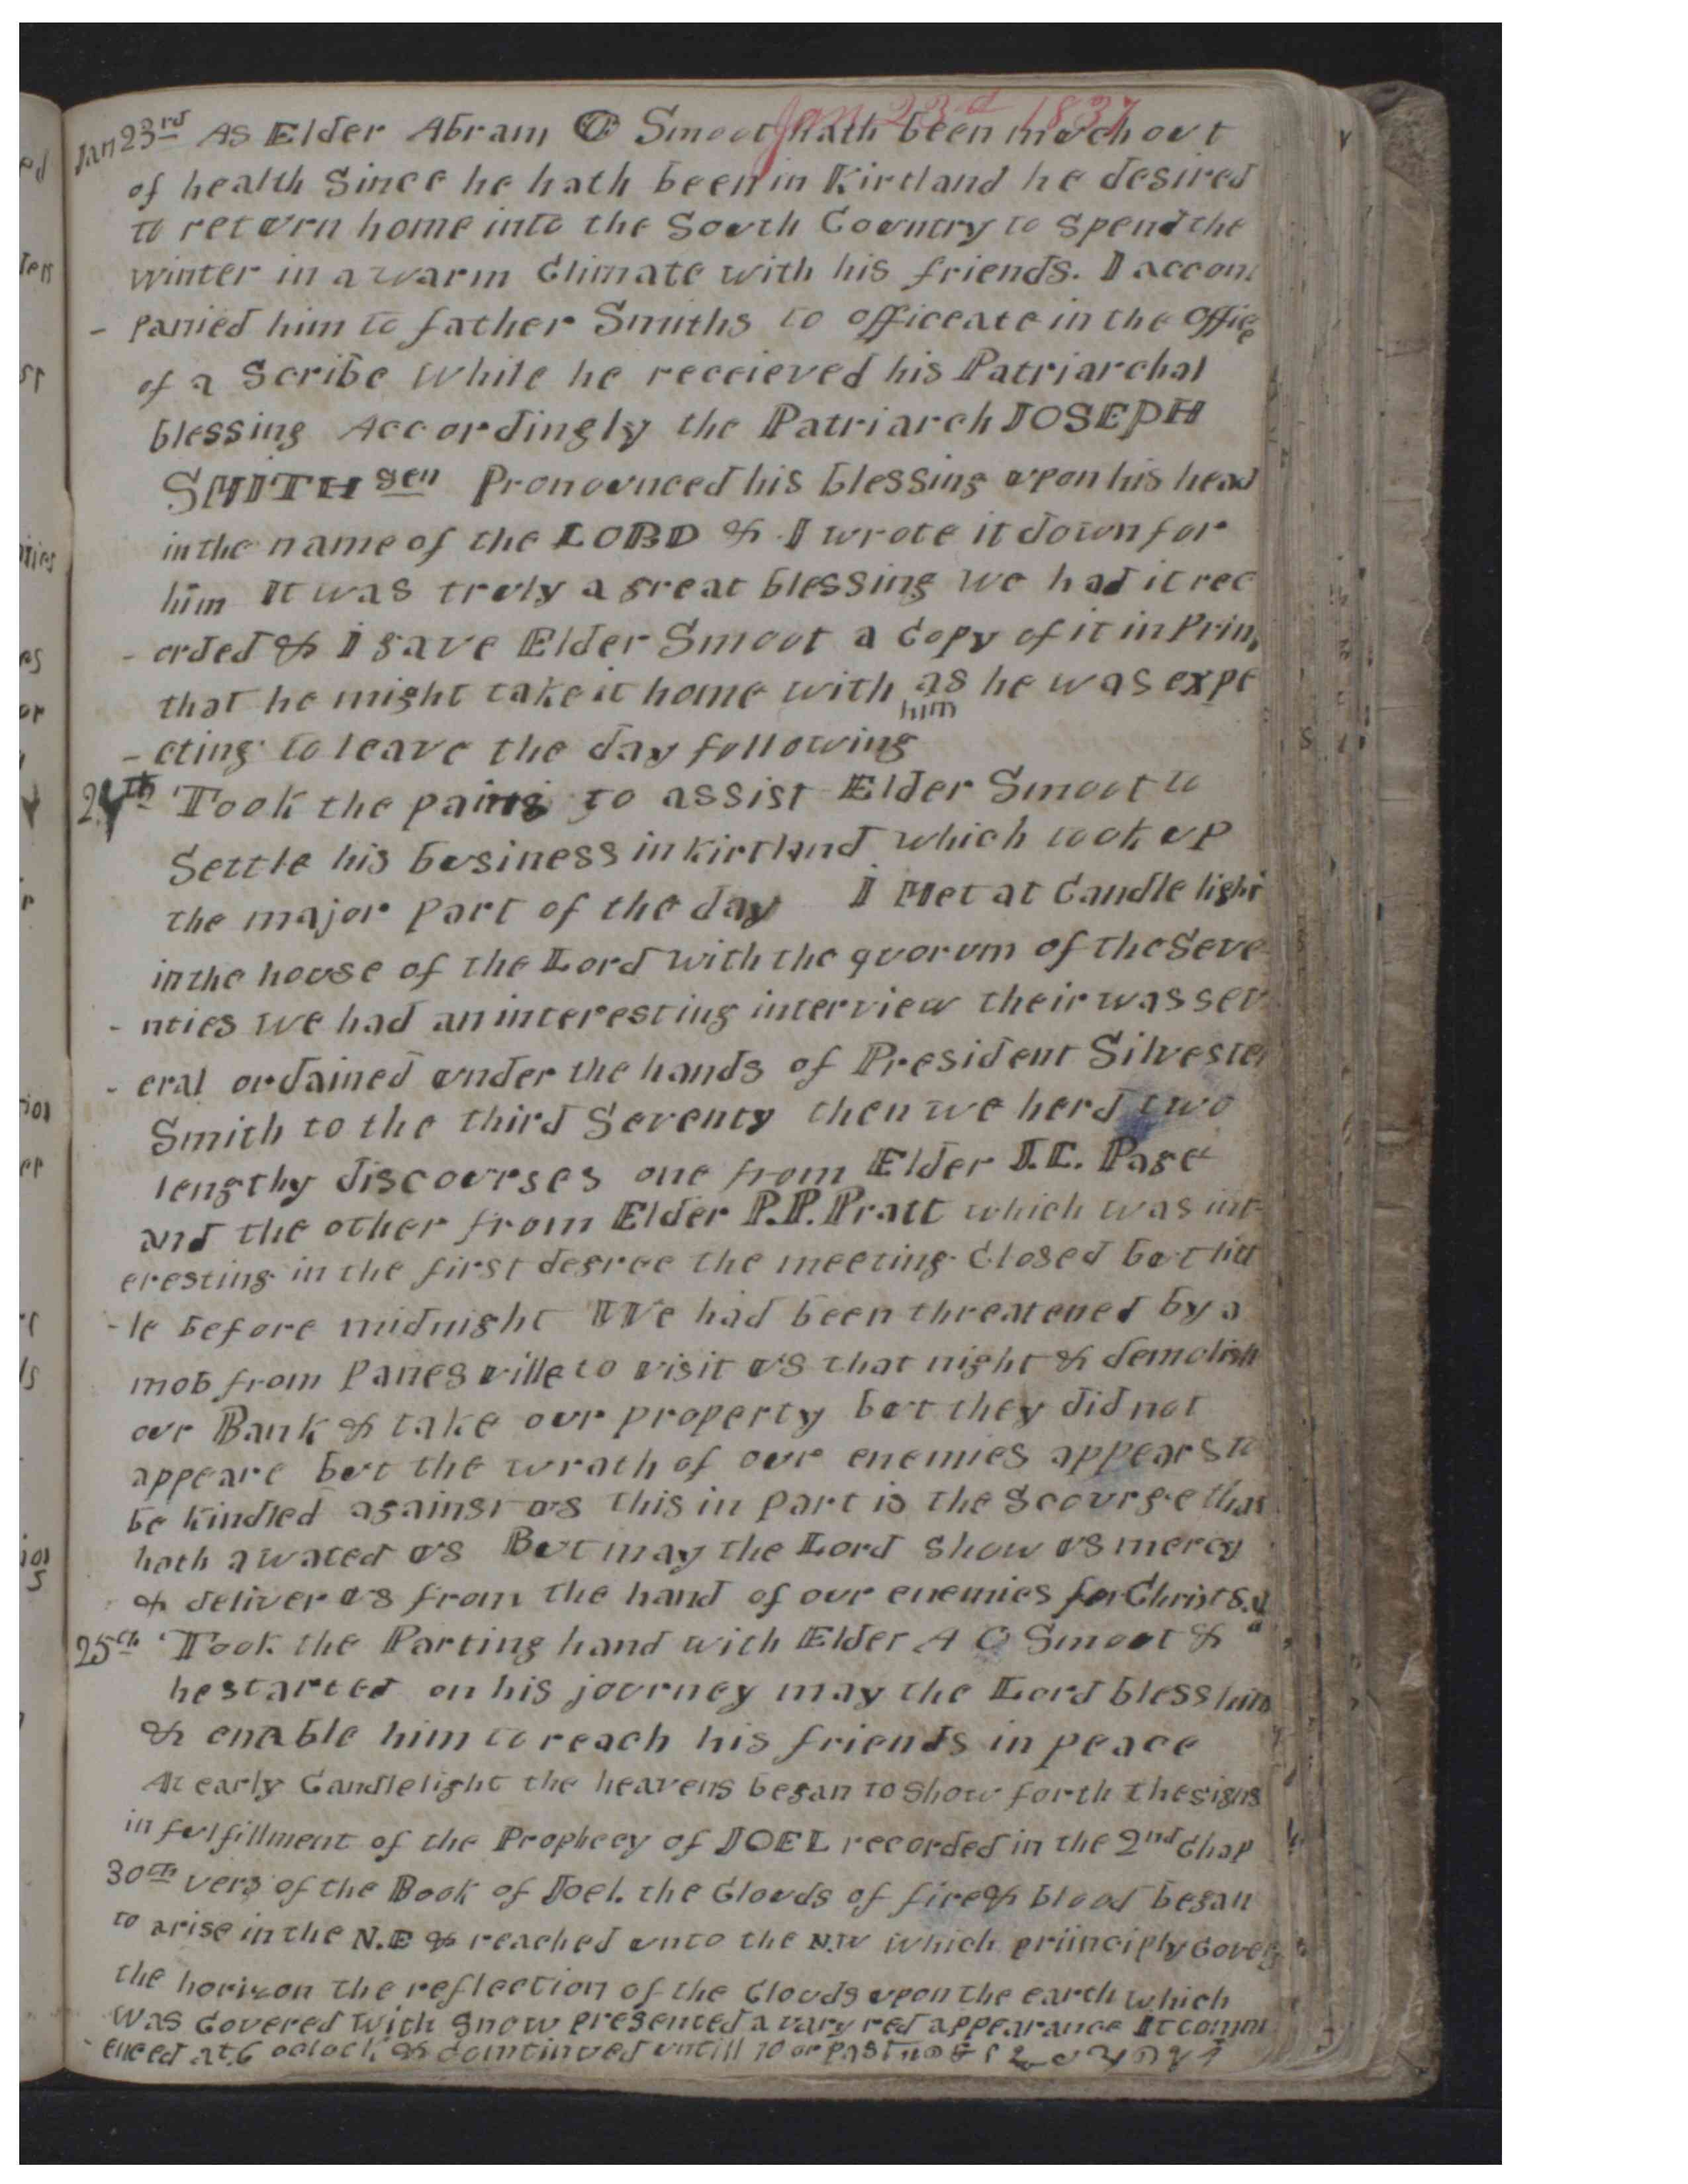 Jan 23rd 1837
Jan 23rd As Elder Abram O Smoot hath been much out
of health Since he hath been in Kirtland he desired
to return home into the South Country to Spend the
winter in a warm Climate with his friends. I accom
- panied him to father Smiths to officeate in the office
of a Scribe while he receieved his Patriarchal
blessing Accordingly the Patriarch JOSEPH
SMITH sen Pronounced his blessing upon his head
in the name of the LORD & I wrote it down for
him It was truly a great blessing we had it rec
- orded & I gave Elder Smoot a Copy of it in Prin
that he might take it home with him as he was expe
- cting to leave the day following
24th Took the pains to assist Elder Smoot to
Settle his business in Kirtland which took up
the major part of the day I Met at Candle light
in the house of the Lord with the quorum of the Seve
- nties we had an interesting interview their was sev
- eral ordained under the hands of President Silvester
Smith to the third Seventy then we herd two
lengthy discourses one from Elder Page
and the other from Elder P.P. Pratt which was int
eresting in the first degree the meeting Closed but litt
- le before midnight We had been threatened by a
mob from Panesville to visit us that night & demolish
our Bank & take our property but they did not
appeare but the wrath of our enemies appears to
be kindled against us this in part is the Scourge that
hath awated us But may the Lord Show us mercy
& deliver us from the hand of our enemies for Christ
25th Took the Parting hand with Elder A O Smoot &
he started on his journey may the Lord bless him
& enable him to reach his friends in peace
At early Candlelight the heavens began to Show forth the signs
in fulfillment of the Prophecy of JOEL recorded in the 2nd Chap
30th vers of the Book of Joel. the Clouds of fire & blood began
to arise in the N.E & reached unto the N.W which priinciply Cover
the horizon the reflection of the Clouds upon the earth which
was Covered with Snow presented a vary red appearance It comm
- enced at 6 oclock & comtinued untill 10 or past